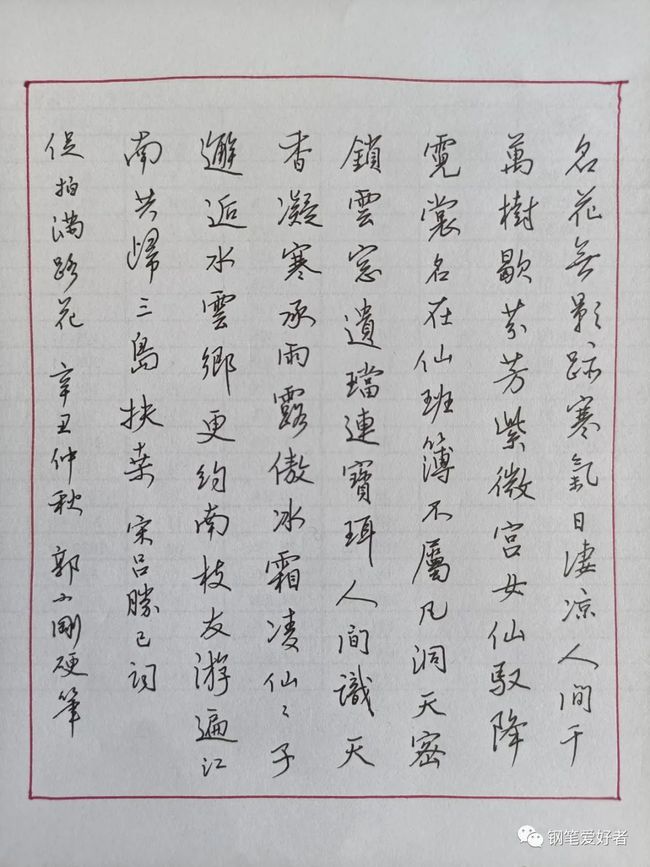 名花無影跡寒氣日淒凉人間千
萬樹歇芬芳紫微宫女仙馭降
霓裳名在仙班簿不屬凡洞天密
鎖雲窓遺璫連寶珥人間識天
香凝寒承雨露傲冰霜凌仙々子
邂逅水雲鄉更约南枝友游遍江
南共歸三島扶桒宋吕勝己詞
促拍满路花辛丑仲秋郭小剛硬筆
钢笔爱好者